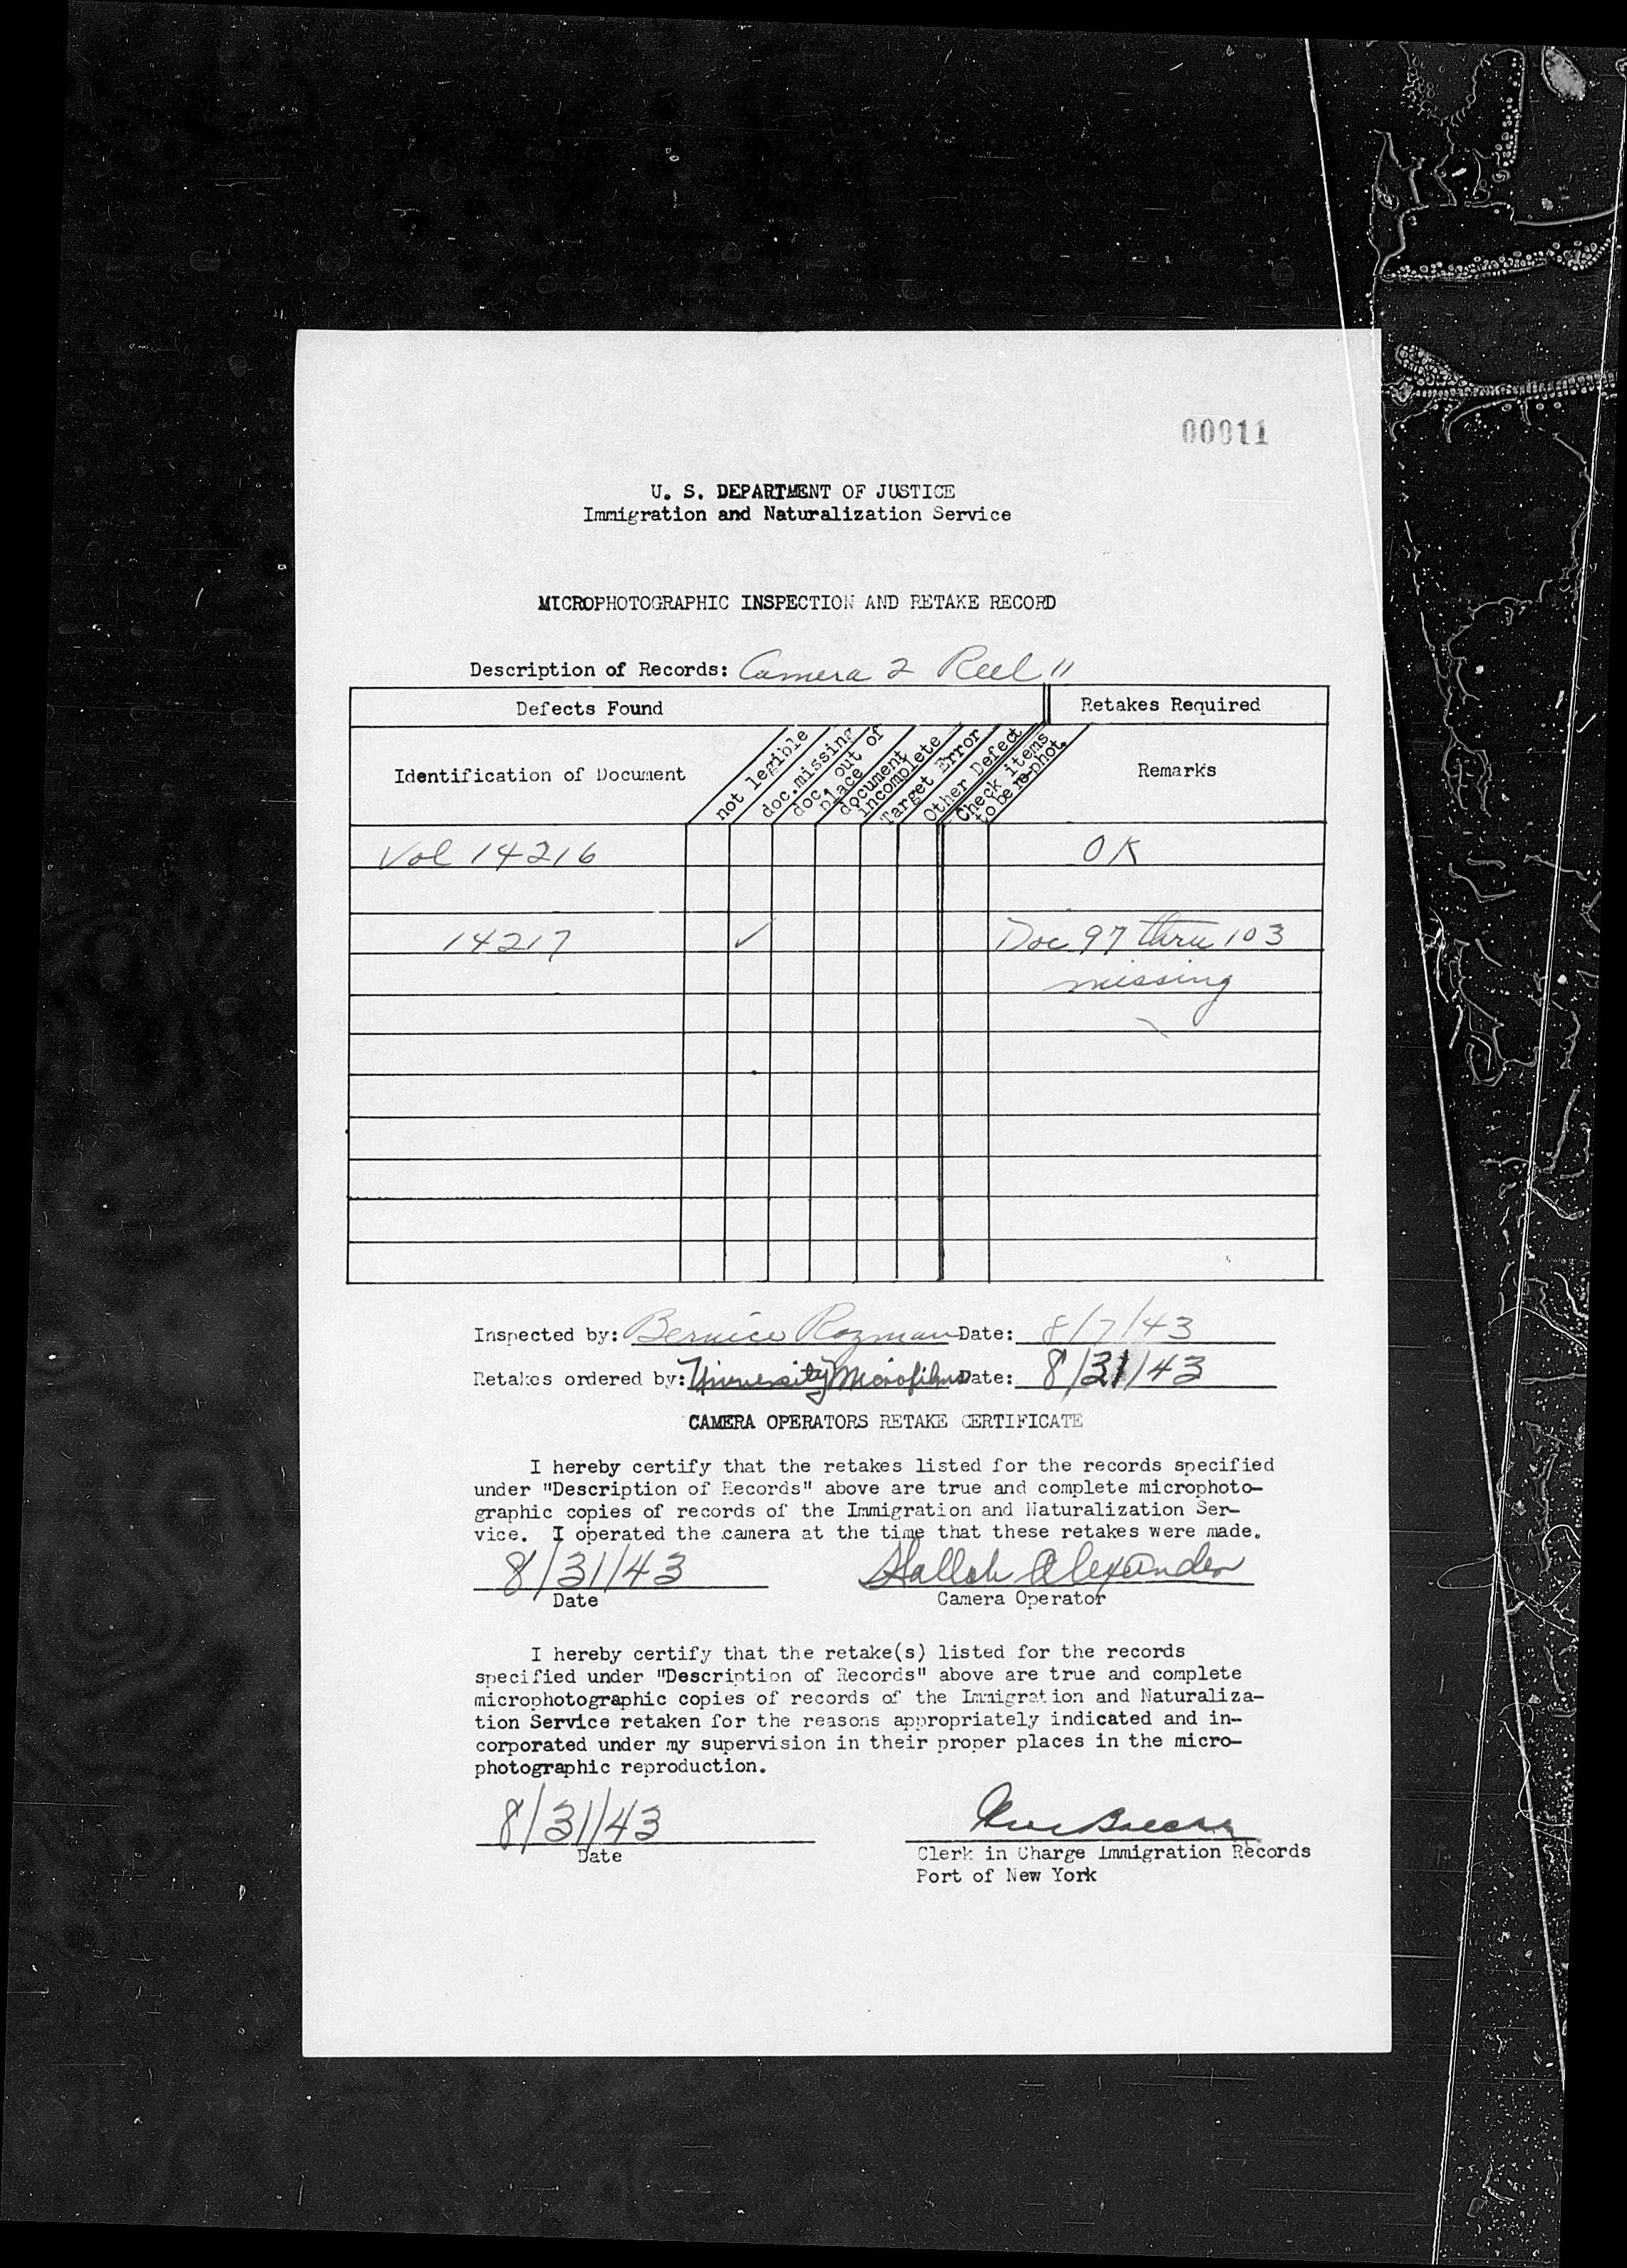 00011
U. S. DEPARTMENT OF JUSTICE
Immigration and Naturalization Service
MICROPHOTOGRAPHIC INSPECTION AND RETAKE RECORD
Description of Records: Camera 2 Reel 11
Defects Found
Retakes Required
Identification of Document
not legible
doc.missing
doc. out of
place
document
incomplete
Target Error
Other Defect
Check items
to be re-phot.
Remarks
Vol 14216 OK
14217 ✓ Doc 97 thru 103
missing
Inspected by: Bernice Rozman Date: 8/7/43
Retakes ordered by: University Microfilms Date: 8/31/43
CAMERA OPERATORS RETAKE CERTIFICATE
I hereby certify that the retakes listed for the records specified
under "Description of Records" above are true and complete microphoto-
graphic copies of records of the Immigration and Naturalization Ser-
vice. I operated the camera at the time that these retakes were made.
8/31/43 Alexander
Date Camera Operator
I hereby certify that the retake(s) listed for the records
specified under "Description of Records" above are true and complete
microphotographic copies of records of the Immigration and Naturaliza-
tion Service retaken for the reasons appropriately indicated and in-
corporated under my supervision in their proper places in the micro-
photographic reproduction.
8/31/43
Date
Clerk in Charge Immigration Records
Port of New York